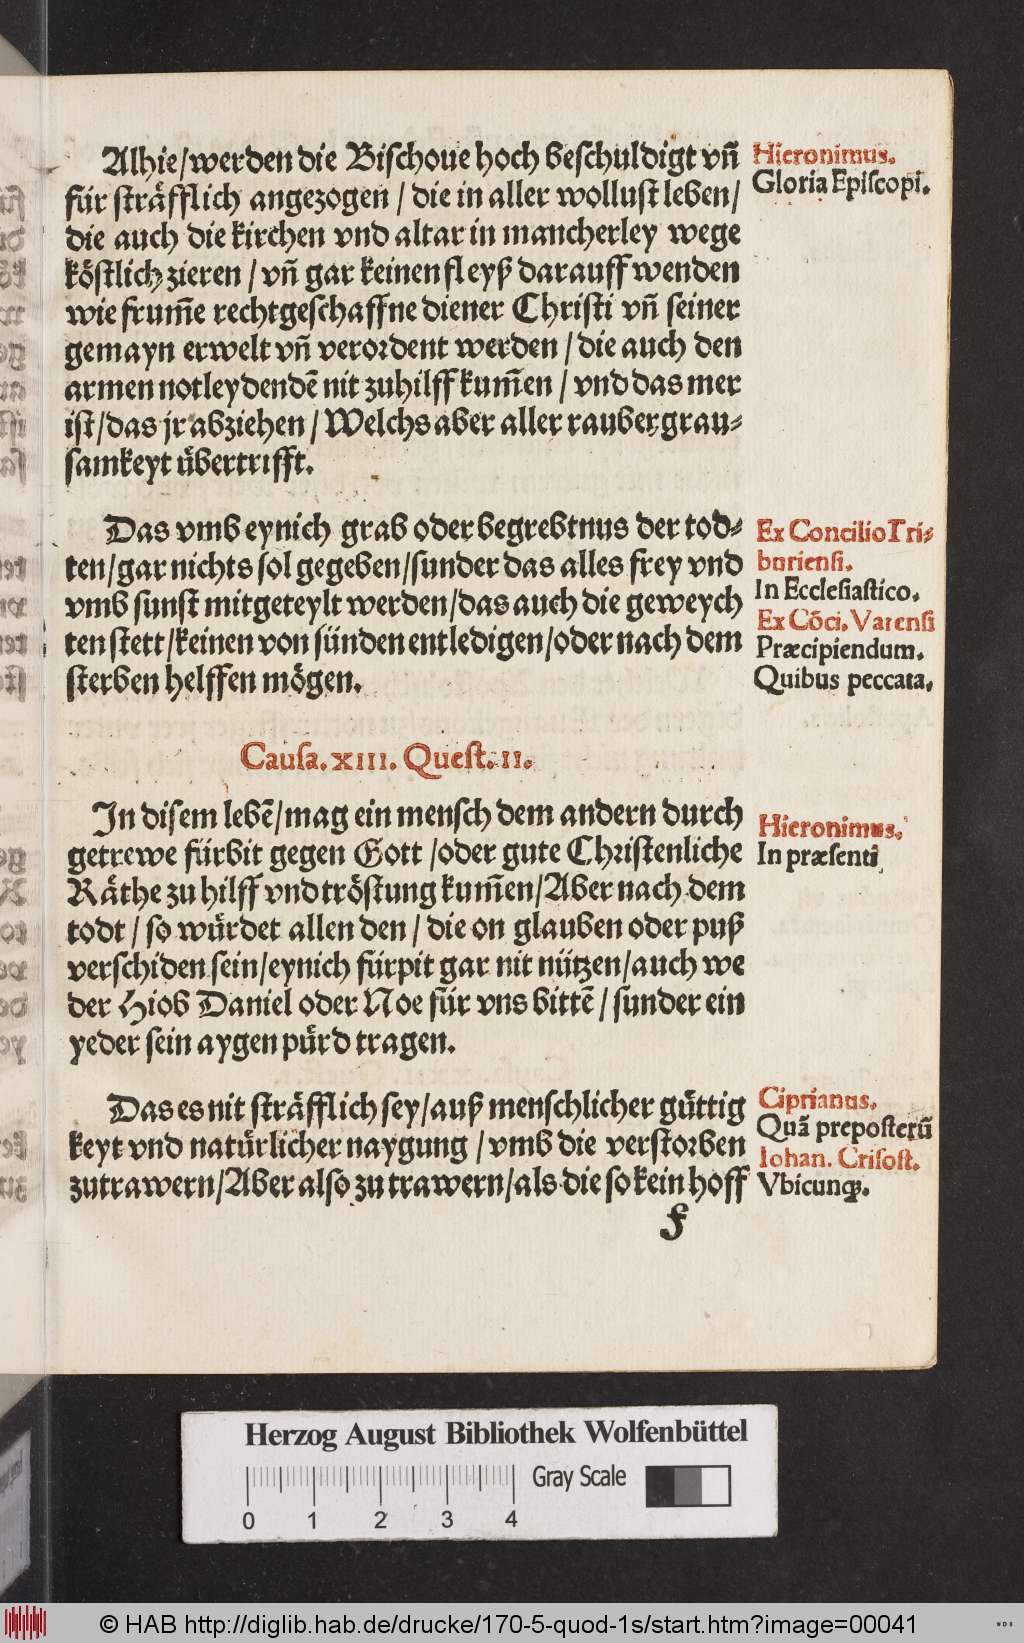 Alhie/werden die Bischoue hoch beschuldigt vñ
für sträfflich angezogen / die in aller wollust leben/
die auch die kirchen vnd altar in mancherley wege
köstlich zieren / vñ gar keinen fleyß darauff wenden
wie frum̃e rechtgeschaffne diener Christi vñ seiner
gemayn erwelt vñ verordent werden / die auch den
armen notleydendẽ nit zuhilff kum̃en / vnd das mer
ist/das jr abziehen / Welchs aber aller rauber grau⸗
samkeyt übertrifft.
Hieronimus.
Gloria Episcopi.
Das vmb eynich grab oder begrebtnus der tod⸗
ten/gar nichts sol gegeben/sunder das alles frey vnd
vmb sunst mitgeteylt werden/das auch die geweych
ten stett/keinen von sünden entledigen/oder nach dem
sterben helffen mögen.
Ex Concilio Tri⸗
buriensi.
In Ecclesiastico.
Ex Cõci. Varensi
Præcipiendum.
Quibus peccata.
Causa. XIII. Quest. II.
In disem lebẽ/mag ein mensch dem andern durch
getrewe fürbit gegen Gott /oder gute Christenliche
Räthe zu hilff vnd tröstung kum̃en/Aber nach dem
todt / so würdet allen den / die on glauben oder puß
verschiden sein/eynich fürpit gar nit nützen/auch we
der Hiob Daniel oder Noe für vns bittẽ / sunder ein
yeder sein aygen pürd tragen.
Hieronimus.
In præsenti
Das es nit sträfflich sey/auß menschlicher güttig
keyt vnd natürlicher naygung / vmb die verstorben
zutrawern/Aber also zu trawern/als die so kein hoff
Ciprianus.
Quã preposterũ
Iohan. Crisost.
Vbicunqꝫ.
f
Herzog August Bibliothek Wolfenbüttel
Gray Scale
0 1 2 3 4
© HAB http://diglib.hab.de/drucke/170-5-quod-1s/start.htm?image=00041